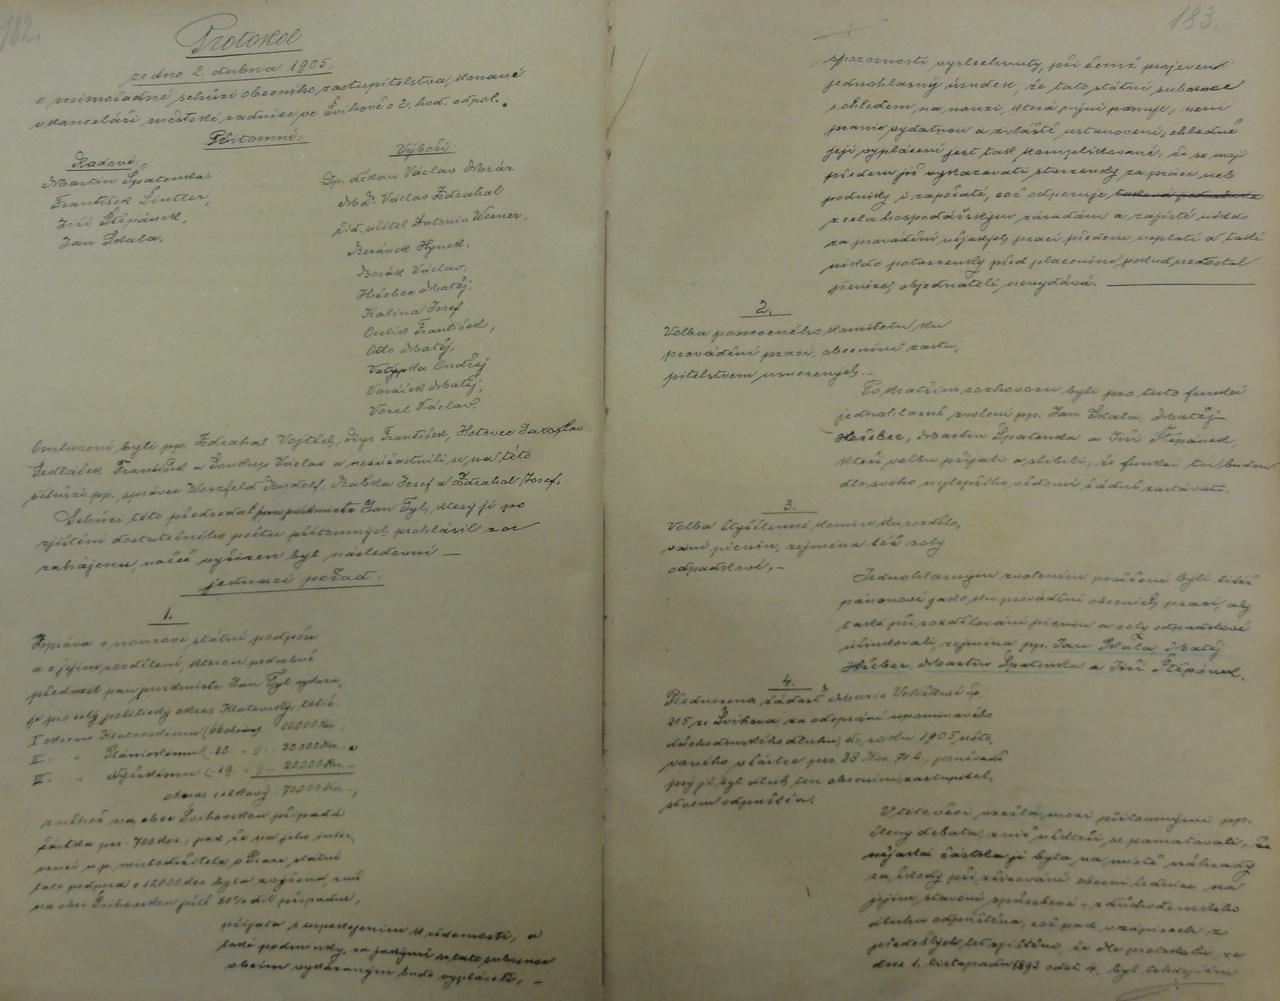 182.
Protokol
ze dne 2. dubna 1905.
o mimořádné schůzi obecního zastupitelstva, konané
v kanceláři městské radnice ve Švihově o 2. hod. odpol.
Přítomni:
Radové:
Martin Špatenka,
František Šintler,
Jiří Štěpánek,
Jan Skala.
Výboři:
Dp. děkan Václav Morár
MDr. Václav Zdrahal
řid. učitel Antonín Wesner,
Beránek Hynek,
Bosák Václav,
Hřebec Matěj,
Kalina Josef
Otto Matěj,
Votýpka Ondřej
Voráček Matěj,
Vorel Václav.
Omluveni byli pp. Zdrahal Vojtěch, Rys František, Hotovec Jaroslav
Sedláček František a Soukup Václav a nesúčastnili se na této
schůzi pp. správce Weszfeld Rudolf, Babka Josef a Zdrahal Josef.
Schůzi této předsedal pan purkmistr Jan Tyl, který ji po
zjištění dostatečného počtu přítomných prohlásil za
zahájenu, načež vyřízen byl následovní —
jednací pořad:
1.
Zpráva o nouzové státní podpoře
a o jejím rozdělení, kterou podrobně
přednesl pan purkmistr Jan Tyl
je pro celý politický okres Klatovský, totiž:
I okresu Klatovskému (66 obcím) 20.000 Kor.
II. " Plánickému ( 20. " ) 30000 Kor. a
III. " Nýrskému ( 19. " ) 20,000 Kor. —
obnos celkový 70000 Kor.,
z něhož na obec Švihovskou připadá
částka per 700 Kor., pak že na jeho inter-
venci u p. místodržitele v Praze státní
tato podpora o 10.000 Kor. byla zvýšena,
na obec Švihovskou ještě 50% díl připadne,
přijata s uspokojením k vědomosti, a
také podmínky, za jakými se tato subvence
obcím vykázaným bude vypláceti, —
183.
pozorností vyslechnuty, při čemž projeven
jednohlasný úsudek, že tato státní subvence
s ohledem na nouzi, která nyní panuje, není
pranic vydatnou a zvláště ustanovení, ohledně
její vyplácení jest tak komplikované, že se mají
předem již vykazovati stvrzenky za práce neb
podniky i započaté, což odporuje
zcela hospodářským zásadám a zajisté nikdo
za provádění nějakých prací předem neplatí a také
nikdo potvrzenky před placením pokud nedostal
peníze, objednateli nevydává. —
2.
Volba pomocného komitétu ku
provádění prací, obecním zastu-
pitelstvem usnesených. —
Po kratším rozhovoru byli pro tuto funkci
jednohlasně zvoleni pp. Jan Skala, Matěj
Hřebec, Martin Špatenka a Jiří Štěpánek,
kteří volbu přijali a slíbili, že funkci tu budou
dle svého nejlepšího vědomí řádně zastávati.
3.
Volba čtyřčlenné komise ku rozdělo-
vání pícnin, zejména též soly
odpadkové, —
Jednohlasným zvolením pověřeni byli tutéž
pánové jako ku provádění obecních prací, aby
také při rozdělování pícnin a soly odpadkové
účinkovali, zejména pp. Jan Skála, Matěj
Hřebec, Martin Špatenka a Jiří Štěpánek.
4.
Přednesena žádost Marie Voříškové čp.
215 ze Švihova za odepsání upomínaného
důchodenského dluhu, do roku 1905, účto-
vaného v částce per. 38 Kor. 71 h., poněvadž
prý jí byl dluh ten obecním zastupitel-
stvem odpuštěn.
V této věci vzešla mezi přítomnými pp.
členy debata, z níž někteří se pamatovali, že
nějaká částka jí byla na místě náhrady
za škody při zřizování obecní lednice na
jejím stavení způsobené — z důchodenského
dluhu odpuštěna, což pak v zápisech z
předešlých let zjištěno, že dle protokolu ze
dne 1. listopadu 1893 odst. 4. byl tehdejším